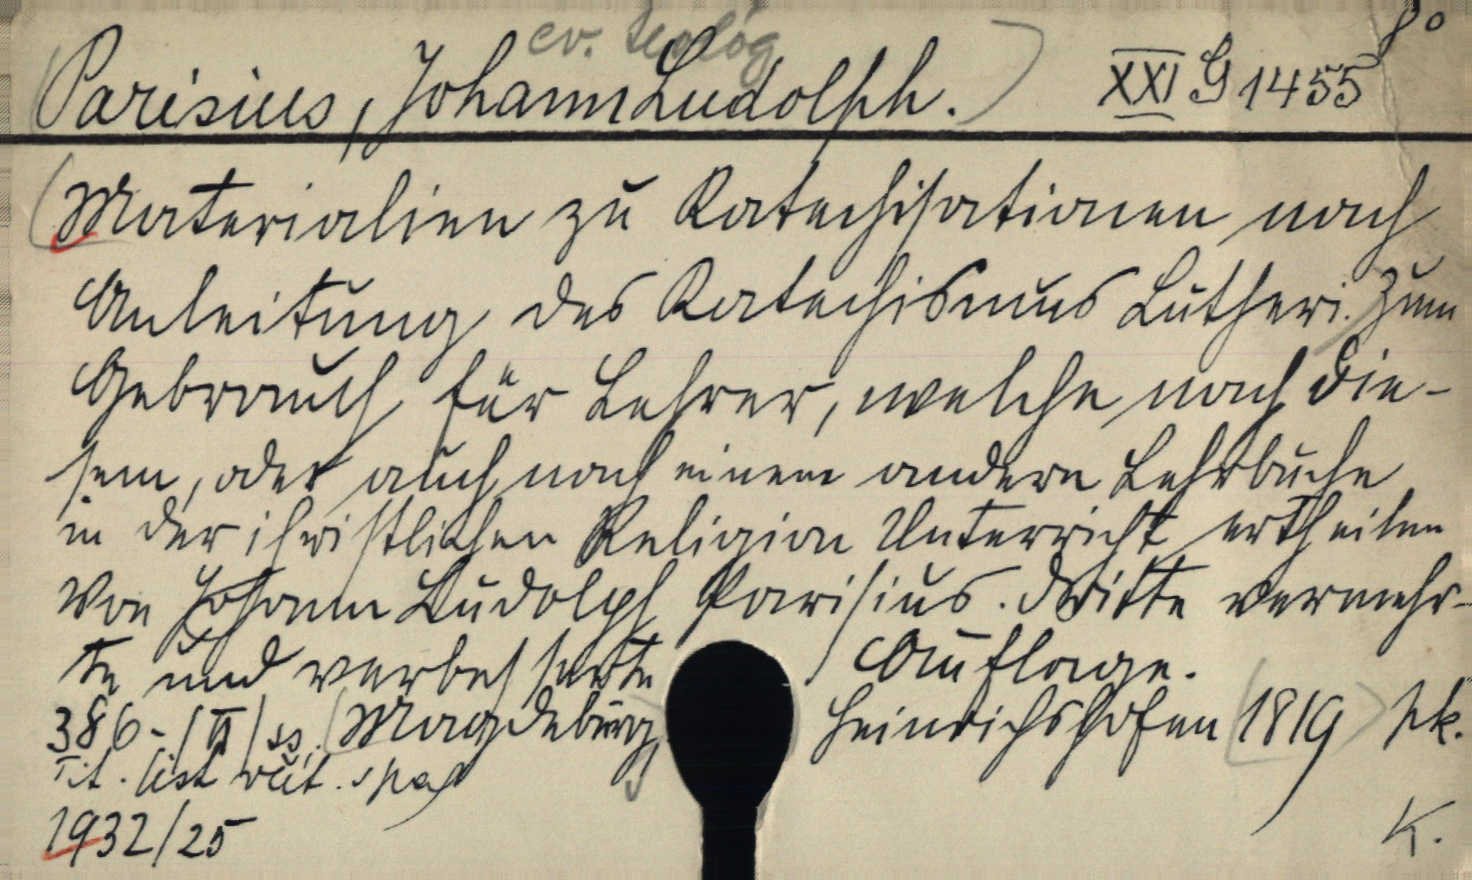 ev. teolog 8°
Parisius, Johann Ludolph. XXI G 1455
Materialien zu Katechisationen nach
Anleitung des Katechismus Lutheri. Zum
Gebrauch für Lehrer, welche nach die-
sem, oder auch nach einem andern Lehrbuche
in der christlichen Religion Unterricht ertheilen
von Johann Ludolph Parisius. Dritte vermehr-
te und verbesserte Auflage.
386 - /VI/ ss. Magdeburg Heinrichshofen 1819 pk.
Tit. list
1932/25 K.